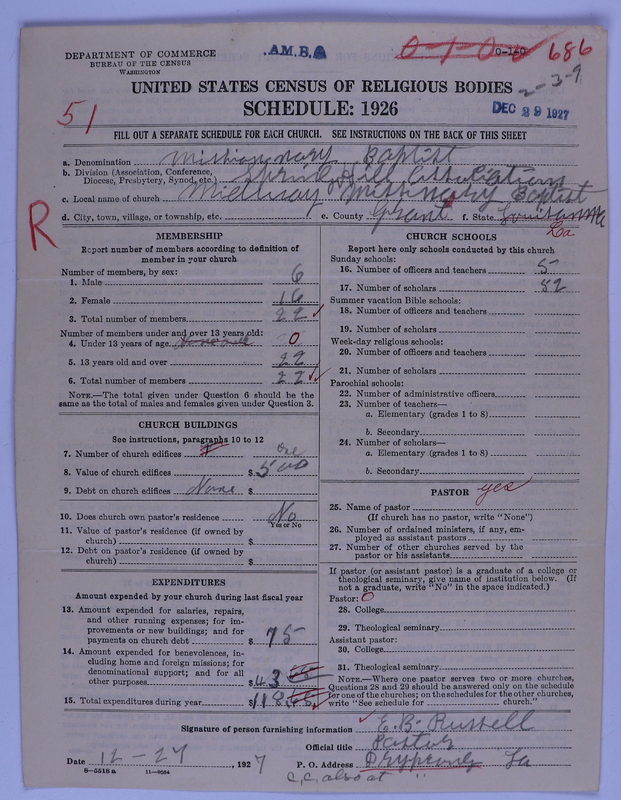 DEPARTMENT OF COMMERCE
BUREAU OF THE CENSUS
WASHINGTON
A.M.B.
0-1-0
686
2-3-9
UNITED STATES CENSUS OF RELIGIOUS BODIES
SCHEDULE: 1926
51
DEC 29 1927
FILL OUT A SEPARATE SCHEDULE FOR EACH CHURCH. SEE INSTRUCTIONS ON THE BACK OF THIS SHEET
a. Denomination Missionary Baptist
b. Division (Association, Conference, Diocese, Presbytery, Synod, etc.) Spring Hill
c. Local name of church Midway Missionary Baptist
d. City, town, village, or township, etc. e. County Grant f. State Louisiana
La
R
MEMBERSHIP
Report number of members according to definition of
member in your church
Number of members, by sex:
1. Male 6
2. Female 16
3. Total number of members 22
Number of members under and over 13 years old:
4. Under 13 years of age 0
5. 13 years old and over 22
6. Total number of members 22
NOTE.—The total given under Question 6 should be
same as the total of males and females given under Question 3.
CHURCH BUILDINGS
See instructions, paragraphs 10 to 12
7. Number of church edifices one
8. Value of church edifices $ 500
9. Debt on church edifices None $
10. Does church own pastor's residence No
Yes or No
11. Value of pastor's residence (if owned by
church) $
12. Debt on pastor's residence (if owned by
church) $
EXPENDITURES
Amount expended by your church during last fiscal year
13. Amount expended for salaries, repairs,
and other running expenses; for im-
provements or new buildings; and for
payments on church debt $ 75
14. Amount expended for benevolences, in-
cluding home and foreign missions; for
denominational support; and for all
other purposes $ 43
15. Total expenditures during year $ 118
CHURCH SCHOOLS
Report here only schools conducted by this church
Sunday schools:
16. Number of officers and teachers 5
17. Number of scholars 52
Summer vacation Bible schools:
18. Number of officers and teachers
19. Number of scholars
Week-day religious schools:
20. Number of officers and teachers
21. Number of scholars
Parochial schools:
22. Number of administrative officers
23. Number of teachers—
a. Elementary (grades 1 to 8)
b. Secondary
24. Number of scholars—
a. Elementary (grades 1 to 8)
b. Secondary
PASTOR yes
25. Name of pastor
(If church has no pastor, write "None")
26. Number of ordained ministers, if any, em-
ployed as assistant pastors
27. Number of other churches served by the
pastor or his assistants
If pastor (or assistant pastor) is a graduate of a college or
theological seminary, give name of institution below. (If
not a graduate, write "No" in the space indicated.)
Pastor: 0
28. College
29. Theological seminary
Assistant pastor:
30. College
31. Theological seminary
NOTE.—Where one pastor serves two or more churches,
Questions 28 and 29 should be answered only on the schedule
for one of the churches; on the schedules for the other churches,
write "See schedule for church."
Signature of person furnishing information E. B. Russell
Official title Pastor
Date 12-27, 1927 P. O. Address La
8-5518a 11-9264
C.C. also at "